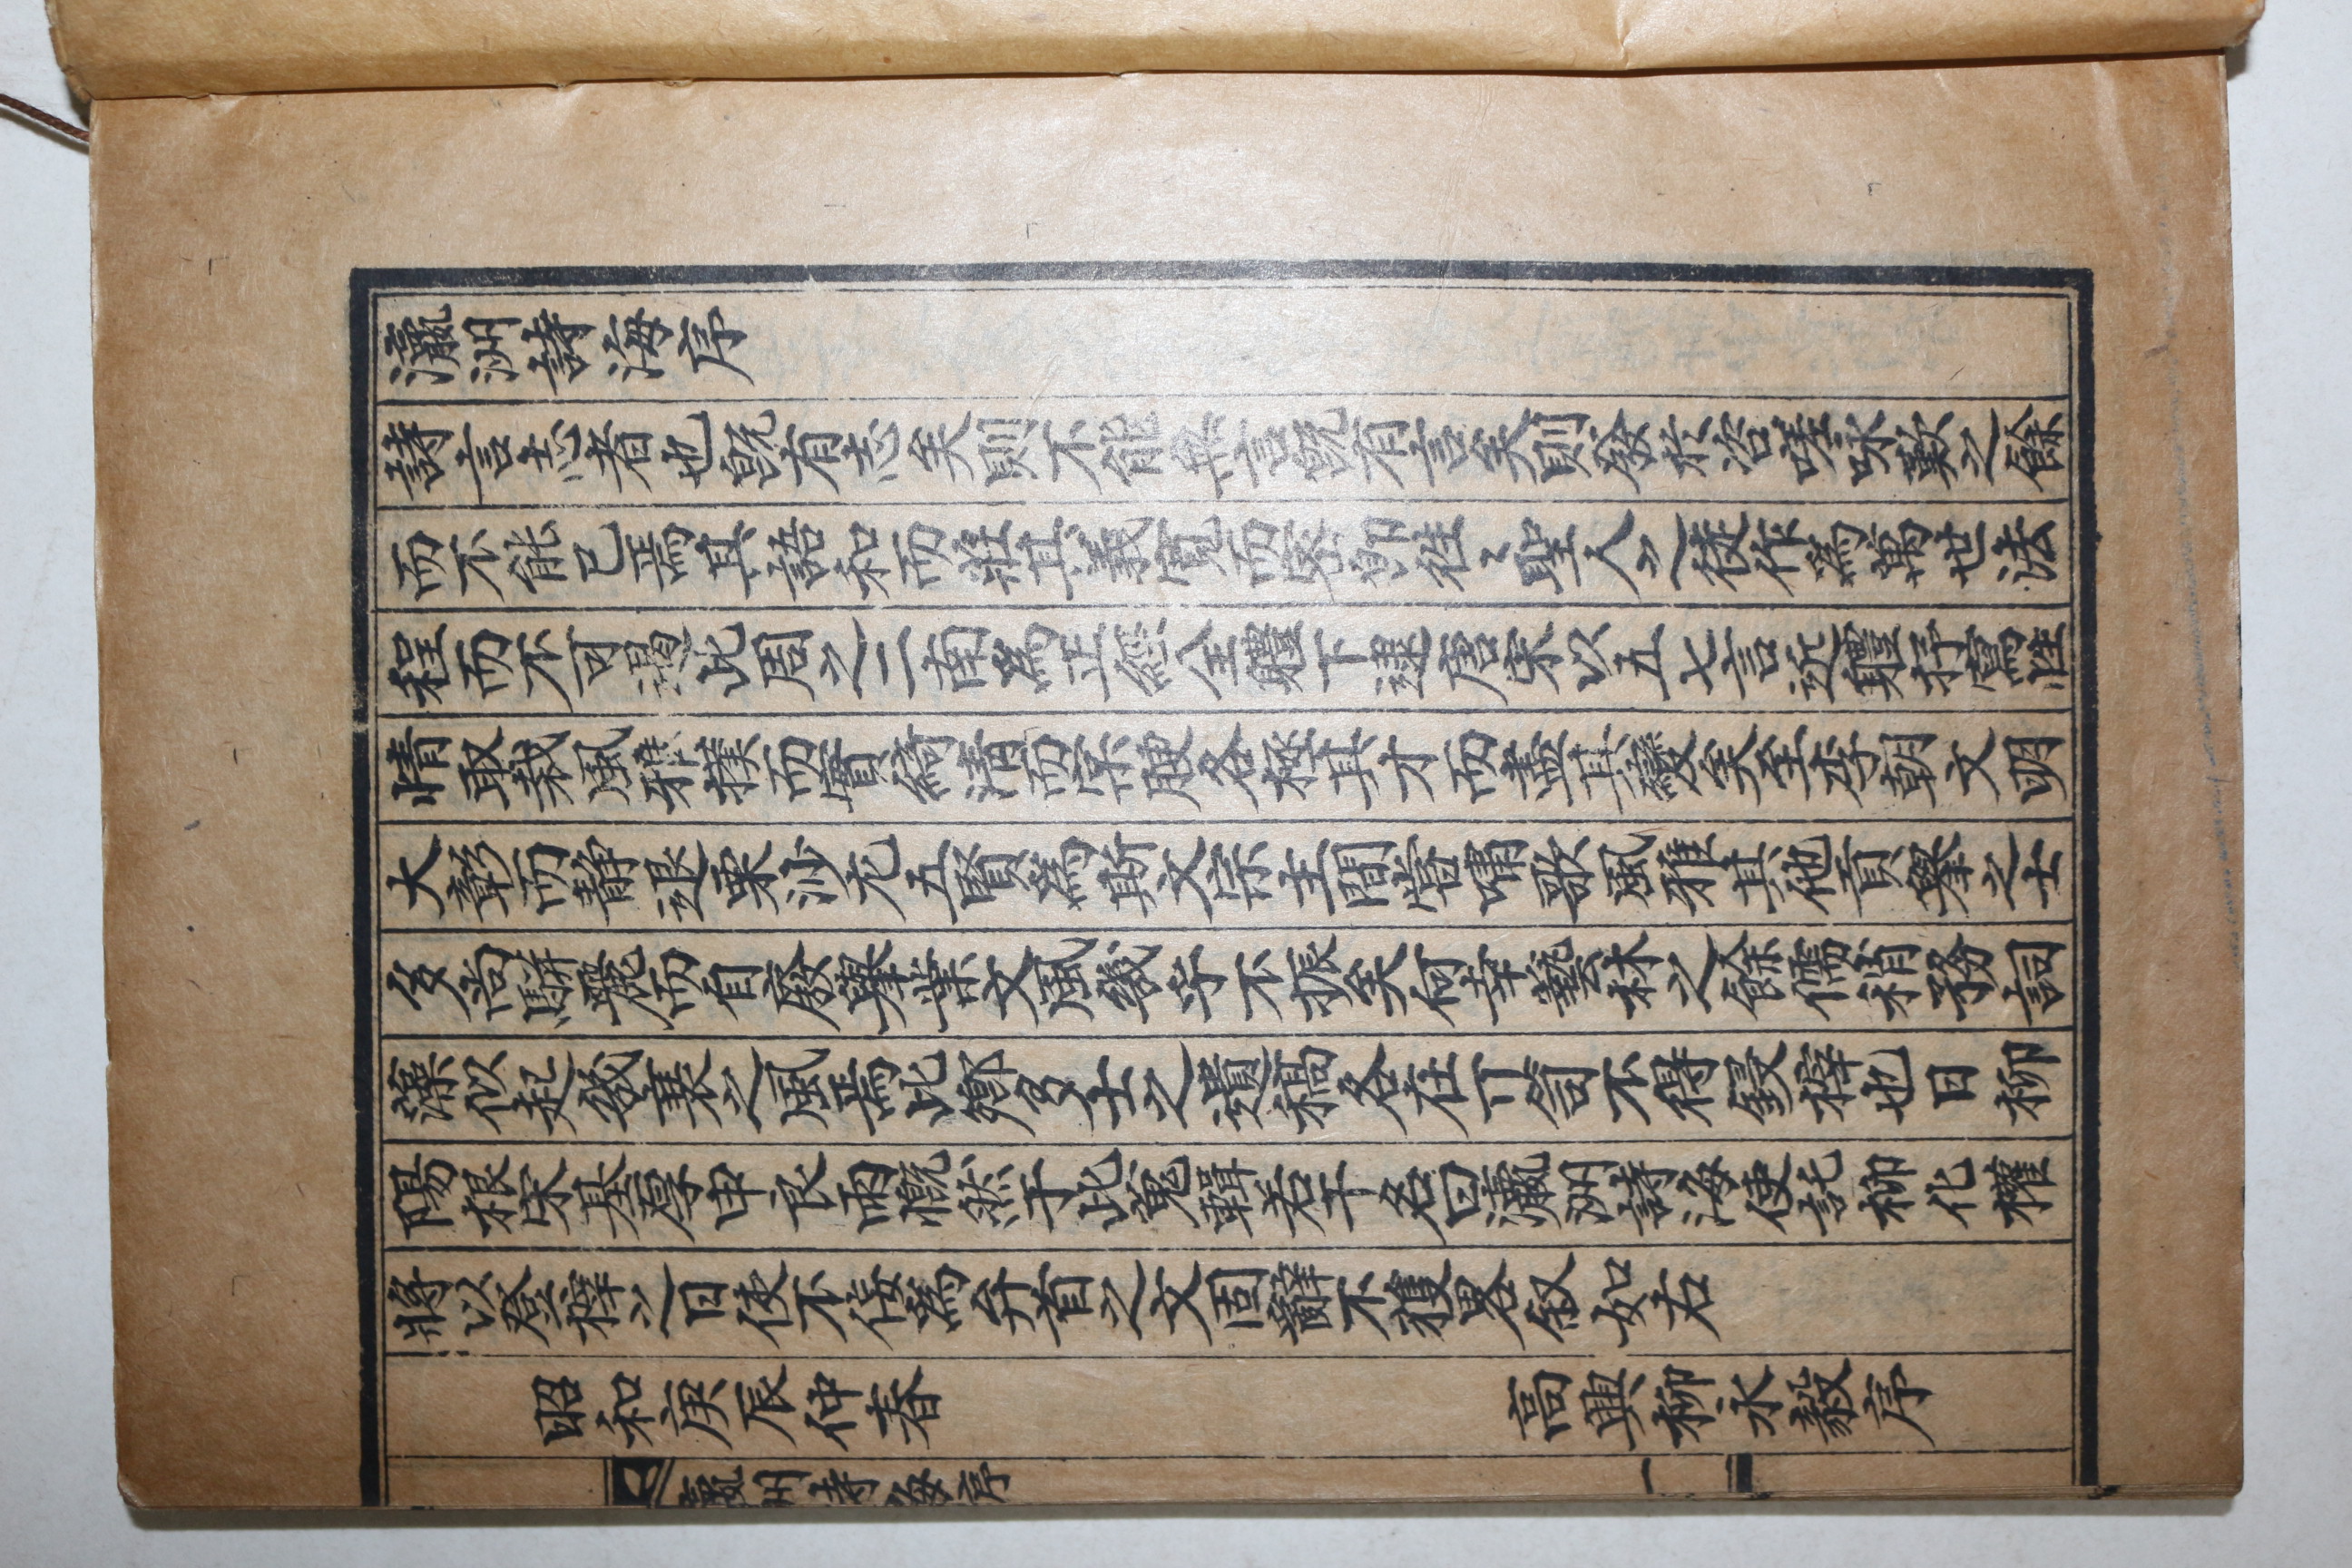 瀛洲詩海序
詩言志者也旣有志矣則不能無言旣有言矣則發於咨嗟咏歎之餘
而不能已焉其語和而莊其義寬而密卽徃〻聖人之徒作爲萬世法
程而不可遏此周之二南爲正經全軆下逮唐宋以五七言近軆抒寫性
情取裁風雅撲而實綺清而腴各極其才而盡其變矣至李朝文明
大彰而静退栗沙尤五賢爲斯文宗主間嘗嘯歌風雅其他貢擧之士
多尚騈麗而自廢擧業文風幾乎不振矣何幸藝林之餘儒稍務詞
藻似起幾衰之風焉此鄉多士之遺稿各在丌笥不得鋟梓也日柳
陽根宋基厚申良雨慨然于此蒐輯若干名曰瀛洲詩海使託柳化權
將以登梓之日使不佞爲弁首之文固辭不獲畧叙如右
昭和庚辰仲春 高興柳永毅序
瀛洲詩海序 一